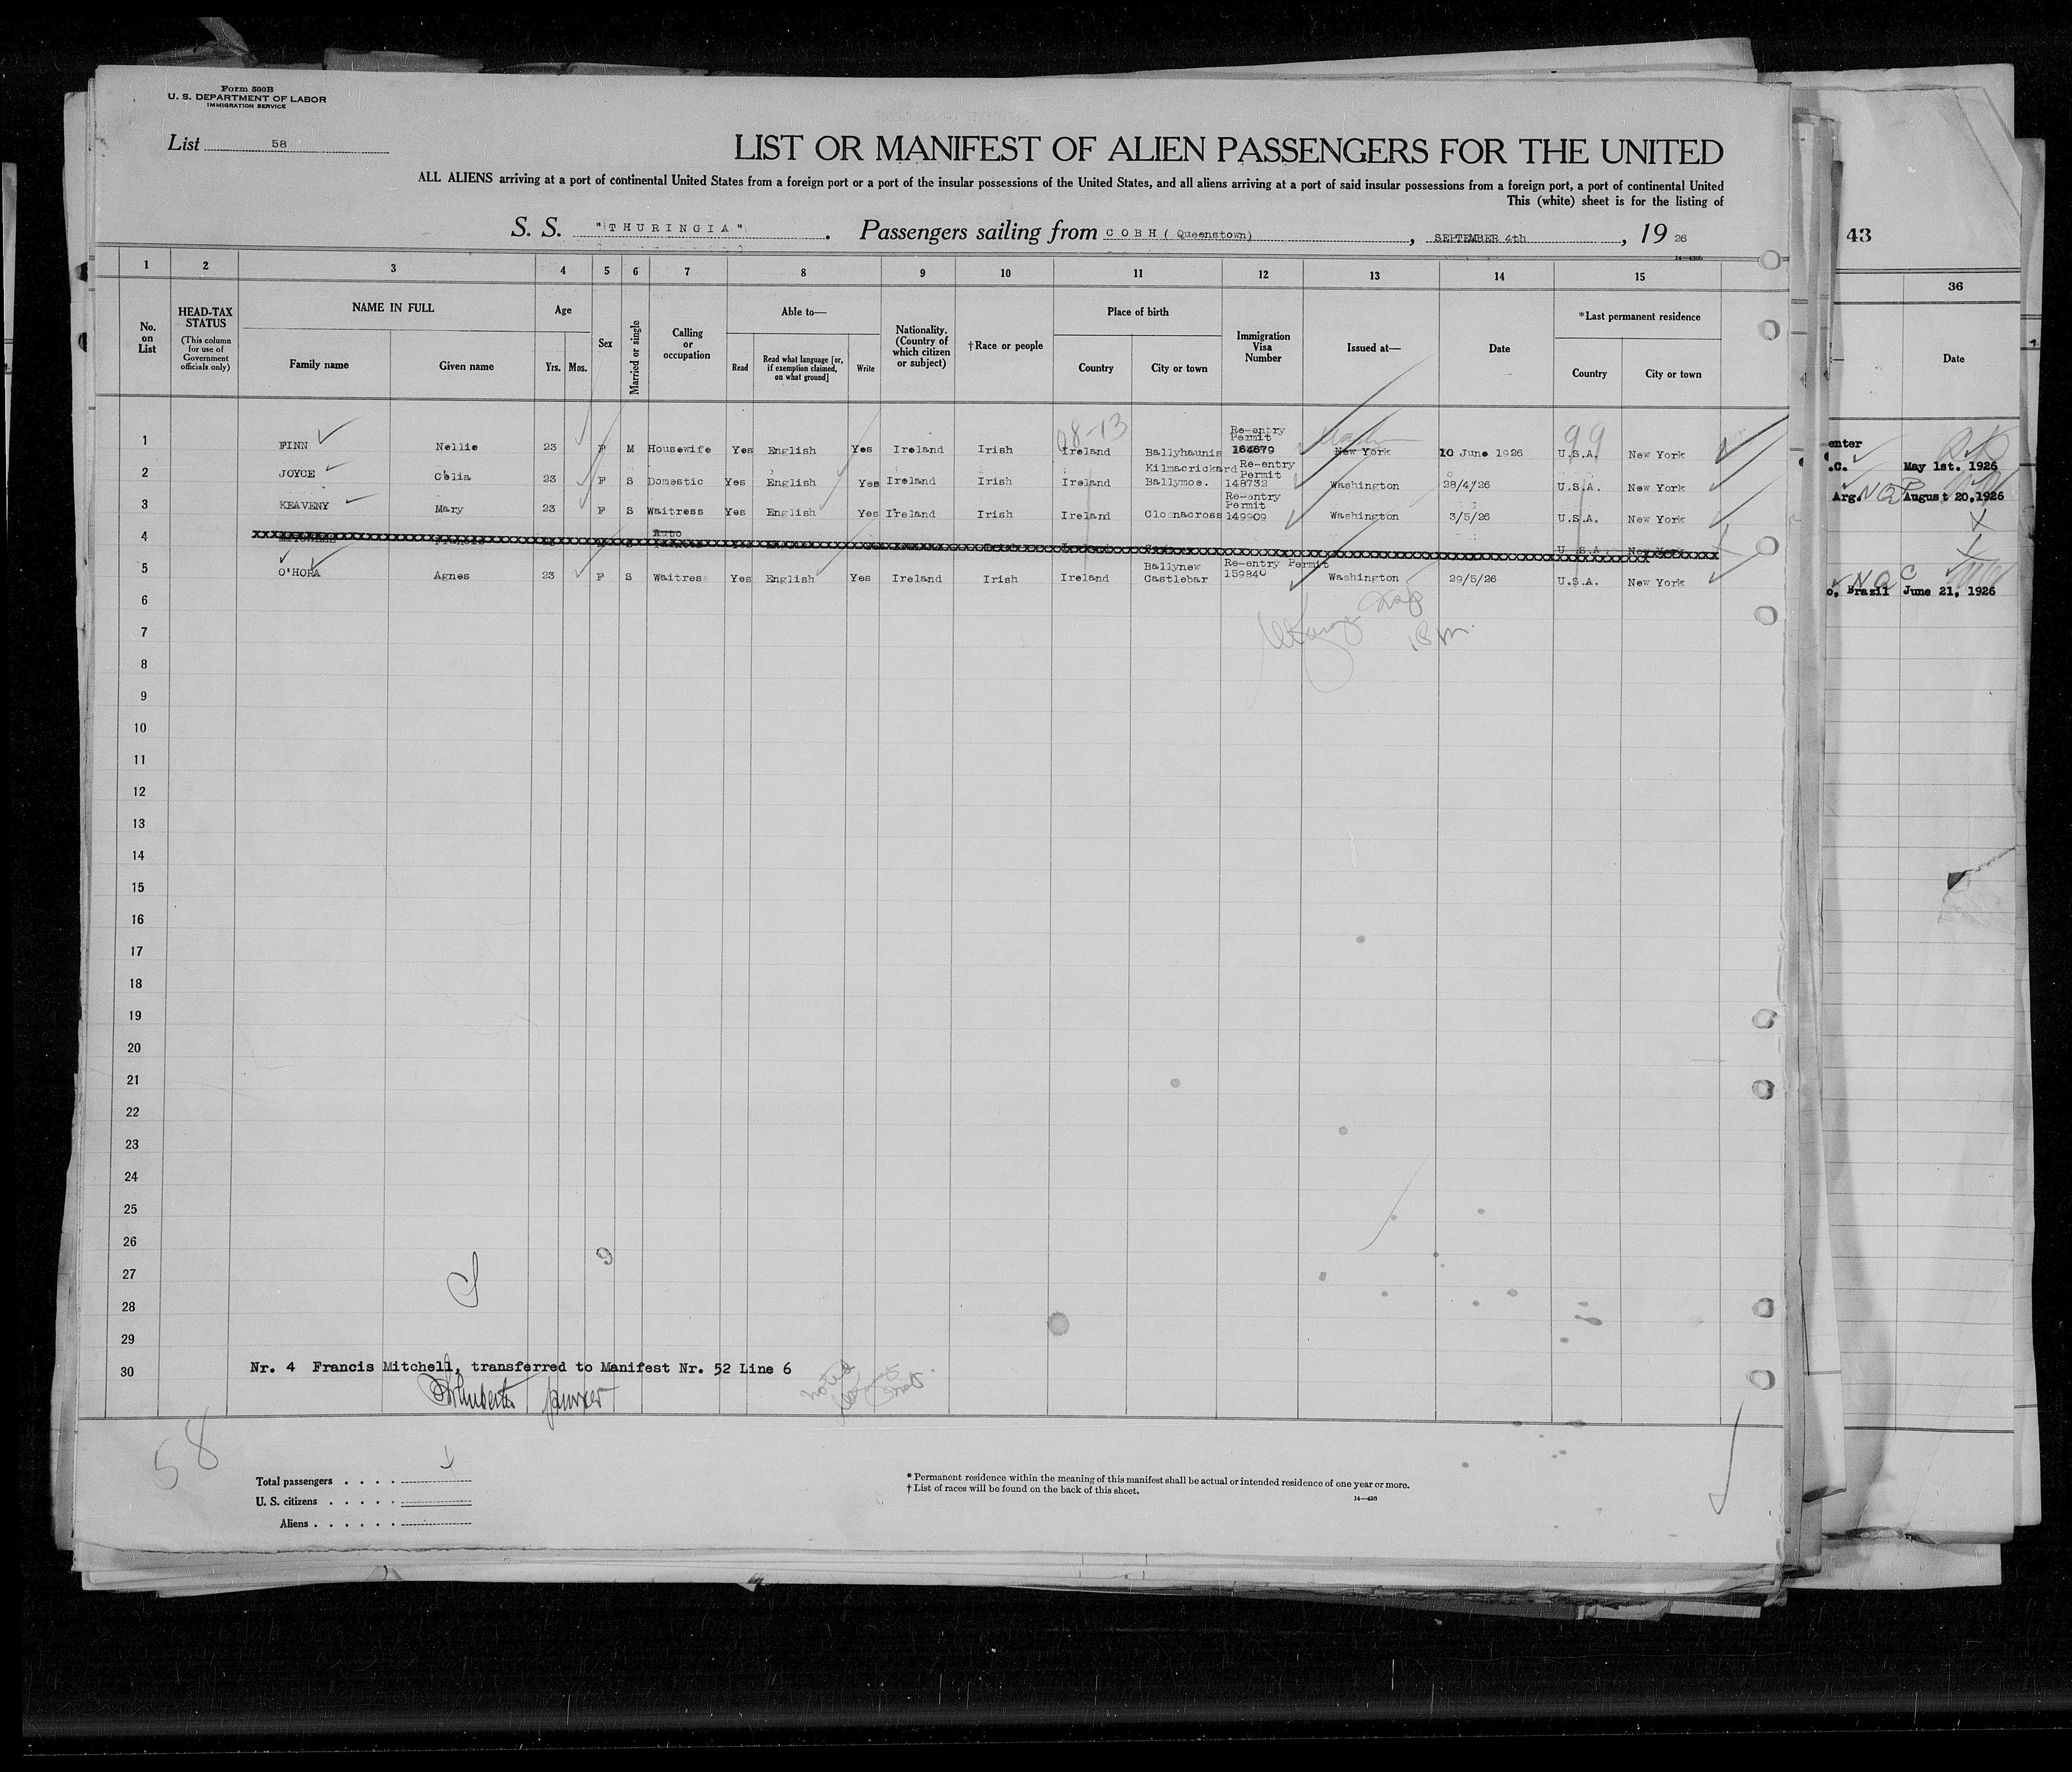 Form 500B
U. S. DEPARTMENT OF LABOR
IMMIGRATION SERVICE
List 58
LIST OR MANIFEST OF ALIEN PASSENGERS FOR THE UNITED
ALL ALIENS arriving at a port of continental United States from a foreign port or a port of the insular possessions of the United States, and all aliens arriving at a port of said insular possessions from a foreign port, a port of continental United
This (white) sheet is for the listing of
S. S. "THURINGIA". Passengers sailing from COBH (Queenstown), SEPTEMBER 4th, 1926
43
1 2 3 4 5 6 7 8 9 10 11 12 13 14 15
36
No. on List
HEAD-TAX STATUS
(This column for use of Government officials only)
NAME IN FULL
Family name
Given name
Age
Yrs. Mos.
Sex
Married or single
Calling or occupation
Able to—
Read
Read what language [or, if exemption claimed, on what ground]
Write
Nationality. (Country of which citizen or subject)
†Race or people
Place of birth
Country
City or town
Immigration Visa Number
Issued at—
Date
*Last permanent residence
Country
City or town
Date
08-13
99
1 FINN Nellie 23 F M Housewife Yes English Yes Ireland Irish Ireland Ballyhaunis Re-entry Permit New York 10 June 1926 U.S.A. New York
enter
.C. May 1st. 1926
2 JOYCE Celia 23 F S Domestic Yes English Yes Ireland Irish Ireland Kilmacrickard Ballymoe. Re-entry Permit 148732 Washington 28/4/26 U.S.A. New York
Arg. August 20,1926
3 KEAVENY Mary 23 F S Waitress Yes English Yes Ireland Irish Ireland Cloonacross Re-entry Permit 149909 Washington 3/5/26 U.S.A. New York
4 Auto U.S.A. New York
5 O'HORA Agnes 23 F S Waitress Yes English Yes Ireland Irish Ireland Ballynew Castlebar Re-entry Permit 159840 Washington 29/5/26 U.S.A. New York
o, Brazil June 21, 1926
6
7
8
9
10
11
12
13
14
15
16
17
18
19
20
21
22
23
24
25
26
27
28
29
30 Nr. 4 Francis Mitchell, transferred to Manifest Nr. 52 Line 6
purser
noted
58
Total passengers
U. S. citizens
Aliens
* Permanent residence within the meaning of this manifest shall be actual or intended residence of one year or more.
† List of races will be found on the back of this sheet.
14—430